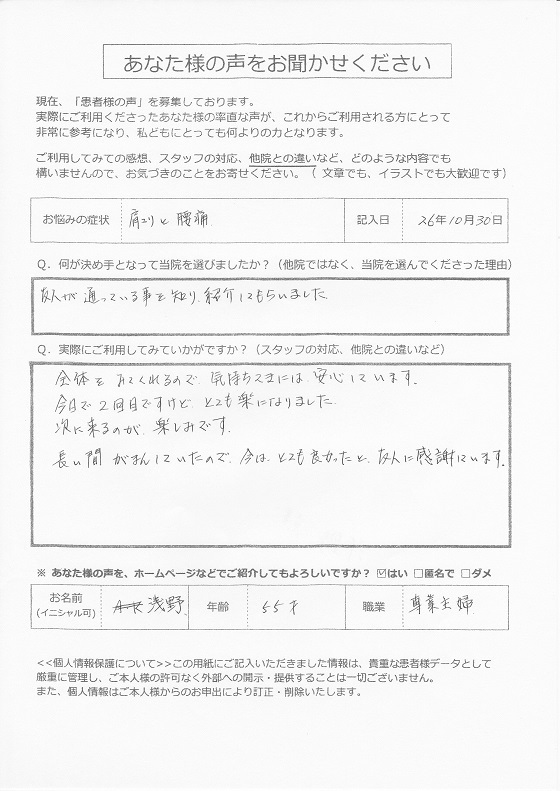 あなた様の声をお聞かせください
現在、「患者様の声」を募集しております。
実際にご利用くださったあなた様の率直な声が、これからご利用される方にとって
非常に参考になり、私どもにとっても何よりの力となります。
ご利用してみての感想、スタッフの対応、他院との違いなど、どのような内容でも
構いませんので、お気づきのことをお寄せください。（ 文章でも、イラストでも大歓迎です）
お悩みの症状 肩コリと腰痛 記入日 26年10月30日
Q．何が決め手となって当院を選びましたか？（他院ではなく、当院を選んでくださった理由）
友人が通っている事を知り、紹介してもらいました。
Q．実際にご利用してみていかがですか？（スタッフの対応、他院との違いなど）
全体をみてくれるので、気持ちてきには、安心しています。
今日で2回目ですけど、とても楽になりました。
次に来るのが、楽しみです。
長い間がまんしていたので、今は、とても良かったと、友人に感謝しています。
※ あなた様の声を、ホームページなどでご紹介してもよろしいですか？ ☑はい □匿名で □ダメ
お名前 浅野 年齢 55才 職業 専業主婦
(イニシャル可)
<<個人情報保護について>>この用紙にご記入いただきました情報は、貴重な患者様データとして
厳重に管理し、ご本人様の許可なく外部への開示・提供することは一切ございません。
また、個人情報はご本人様からのお申出により訂正・削除いたします。